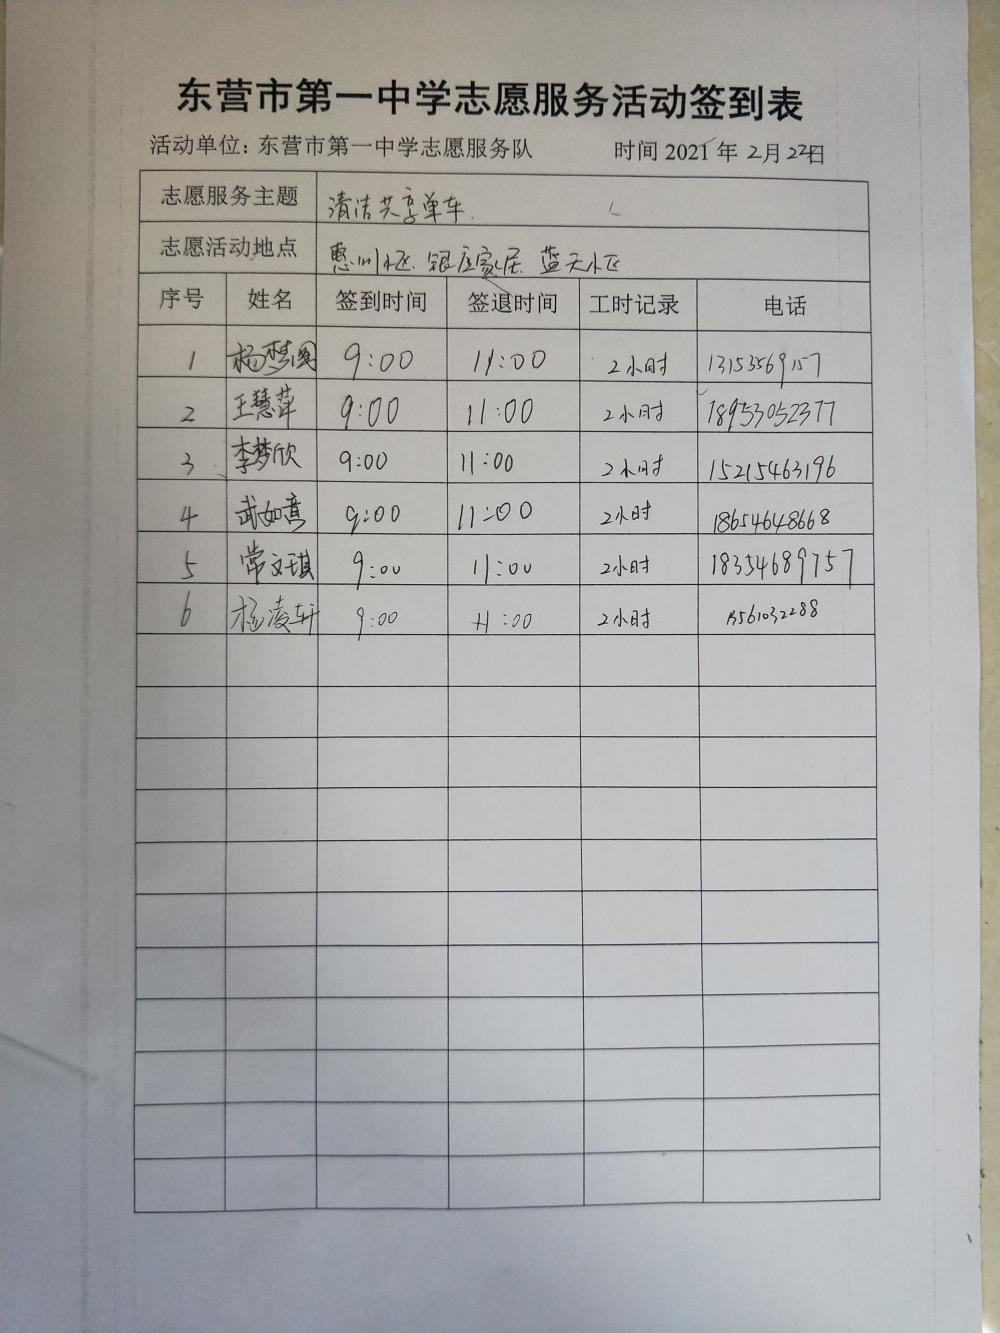 东营市第一中学志愿服务活动签到表
活动单位：东营市第一中学志愿服务队 时间 2021 年 2月 22日
志愿服务主题 清洁共享单车.
志愿活动地点 惠州小区. 银座家居 蓝天小区
序号 姓名 签到时间 签退时间 工时记录 电话
1 杨梦圆 9:00 11:00 2小时 13153569157
2 王慧萍 9:00 11:00 2小时 18953052377
3 李梦欣 9:00 11:00 2小时 15215463196
4 武如意 9:00 11:00 2小时 18654648668
5 常文琪 9:00 11:00 2小时 18354689757
6 杨凌轩 9:00 11:00 2小时